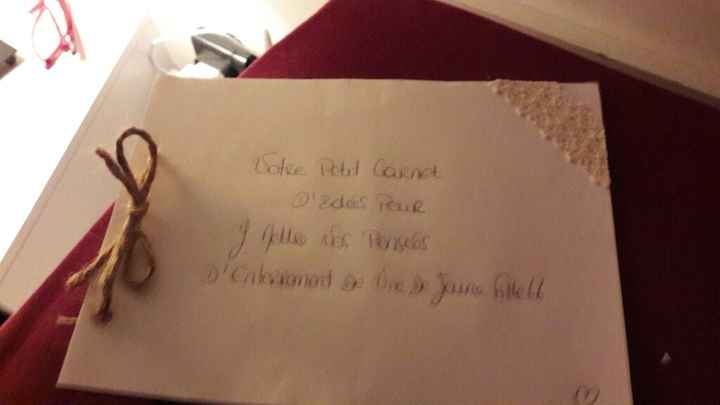 Votre Petit Carnet
D'Idées Pour
y Mettre Nos Pensées
D'Enterrement de Vie de Jeune Fille